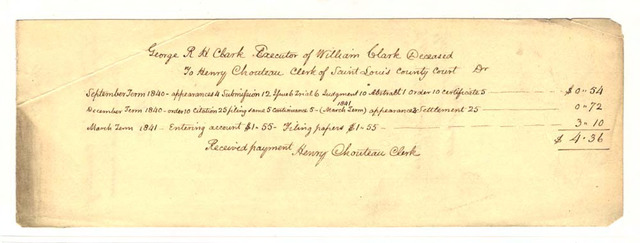 George R H Clark Executor of William Clark Deceased
To Henry Chouteau Clerk of Saint Louis County Court Dr
September Term 1840 - appearances 4 Submission 12 Judgment 10 Abstract 1 order 10 certificate 5 $0"54
1841
December Term 1840 - order 10 Citation 25 filing same 5 Continuance 5 - (March Term) appearance 2 Settlement 25 0"72
March Term 1841 - Entering account $1-55 - Filing papers $1-55 - 3"10
$4.36
Received payment Henry Chouteau Clerk